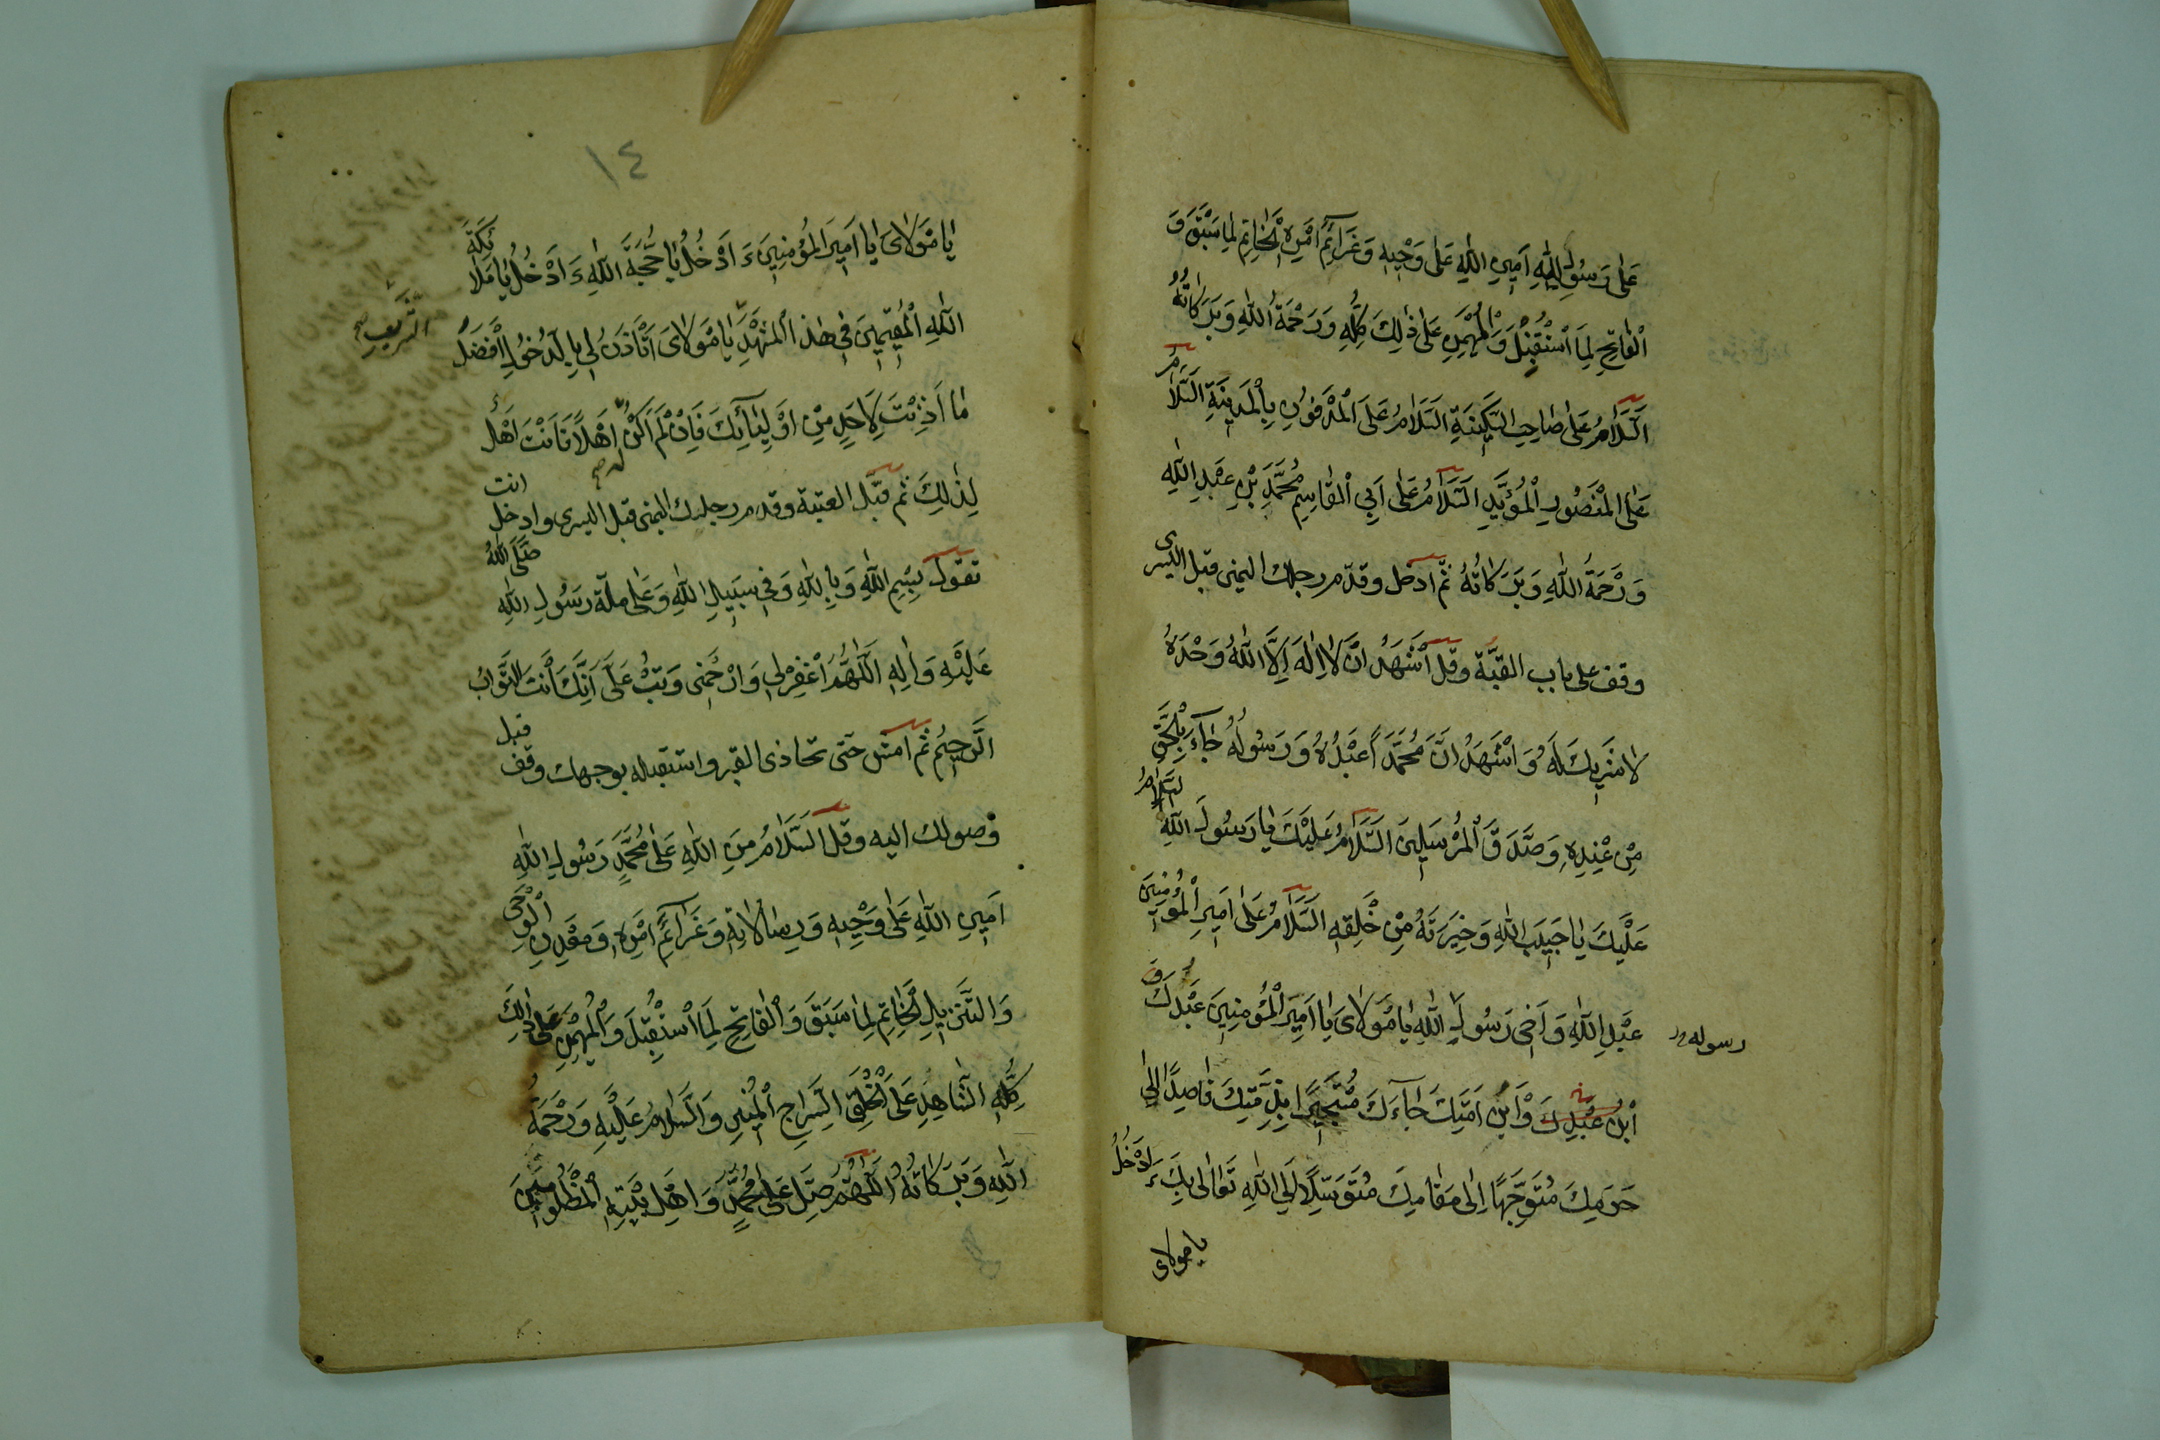 عَلىٰ رَسُولِ اللّٰهِ اَمِينِ اللّٰهِ عَلىٰ وَحْيِهِ وَعَزَائِمِ اَمْرِهِ الْخٰاتِمِ لِمٰا سَبَقَ وَ
الْفٰاتِحِ لِمَا اسْتُقْبِلَ وَالْمُهَيْمِنِ عَلىٰ ذٰلِكَ كُلِّهِ وَرَحْمَةُ اللّٰهِ وَبَرَكٰاتُهُ
اَلسَّلٰامُ عَلىٰ صٰاحِبِ السَّكِينَةِ اَلسَّلٰامُ عَلَى الْمَدْفُونِ بِالْمَدِينَةِ اَلسَّلٰامُ
عَلَى الْمَنْصُورِ الْمُؤَيَّدِ اَلسَّلٰامُ عَلىٰ اَبِي الْقٰاسِمِ مُحَمَّدِ بْنِ عَبْدِ اللّٰهِ
وَرَحْمَةُ اللّٰهِ وَبَرَكٰاتُهُ ثمّ ادخل وقدّم رجلك اليمنى قبل اليسرى
وقف على باب القبّة وقل اَشْهَدُ انْ لٰا اِلٰهَ اِلَّا اللّٰهُ وَحْدَهُ
لٰا شَرِيكَ لَهُ وَاَشْهَدُ انَّ مُحَمَّدًا عَبْدُهُ وَرَسُولُهُ جٰاءَ بِالْحَقِّ
مِنْ عِنْدِهِ وَصَدَّقَ الْمُرْسَلِينَ اَلسَّلٰامُ عَلَيْكَ يٰا رَسُولَ اللّٰهِ السَّلٰامُ
عَلَيْكَ يٰا حَبِيبَ اللّٰهِ وَخِيَرَتَهُ مِنْ خَلْقِهِ اَلسَّلٰامُ عَلىٰ اَمِيرِ الْمُؤْمِنِينَ
عَبْدِ اللّٰهِ وَاَخِى رَسُولِ اللّٰهِ يٰا مَوْلٰاىَ يٰا اَمِيرَ الْمُؤْمِنِينَ عَبْدُكَ وَ
رسوله
ابْنُ عَبْدِكَ وَابْنُ اَمَتِكَ جٰاءَكَ مُسْتَجِيرًا بِذِمَّتِكَ قٰاصِدًا اِلىٰ
حَرَمِكَ مُتَوَجِّهًا اِلىٰ مَقٰامِكَ مُتَوَسِّلًا اِلَى اللّٰهِ تَعٰالىٰ بِكَ ءَاَدْخُلُ
يا مولاى
١٤
يٰا مَوْلٰاىَ يٰا اَمِيرَ الْمُؤْمِنِينَ ءَاَدْخُلُ يٰا حُجَّةَ اللّٰهِ ءَاَدْخُلُ يٰا مَلٰائِكَةَ
اللّٰهِ الْمُقِيمِينَ فِي هٰذَا الْمَشْهَدِ يٰا مَوْلٰاىَ اَتَأْذَنُ لِي بِالدُّخُولِ اَفْضَلَ
الشَّرِيفِ صح
مٰا اَذِنْتَ لِاَحَدٍ مِنْ اَوْلِيٰائِكَ فَاِنْ لَمْ اَكُنْ اَهْلًا فَاَنْتَ اَهْلٌ
له صح
لِذٰلِكَ ثمّ قبّل العتبة وقدم رجلك اليمنى قبل اليسرى وادخل انت
تقول بِسْمِ اللّٰهِ وَبِاللّٰهِ وَفِي سَبِيلِ اللّٰهِ وَعَلىٰ ملّة رَسُولِ اللّٰهِ صَلَّى اللّٰهُ
عَلَيْهِ وَاٰلِهِ اَللّٰهُمَّ اغْفِرْ لِي وَارْحَمْنِي وَتُبْ عَلَىَّ اِنَّكَ اَنْتَ التَّوَّابُ
الرَّحِيمُ ثم امش حتى تحاذى القبر واستقبله بوجهك وقف قبل
وصولك اليه وقل اَلسَّلٰامُ مِنَ اللّٰهِ عَلىٰ مُحَمَّدٍ رَسُولِ اللّٰهِ
اَمِينِ اللّٰهِ عَلىٰ وَحْيِهِ وَرِسٰالٰاتِهِ وَعَزَائِمِ اَمْرِهِ وَمَعْدِنِ الْوَحْىِ
وَالتَّنْزِيلِ الْخٰاتِمِ لِمٰا سَبَقَ وَالْفٰاتِحِ لِمَا اسْتُقْبِلَ وَالْمُهَيْمِنِ عَلىٰ ذٰلِكَ
كُلِّهِ الشّٰاهِدِ عَلَى الْخَلْقِ السِّرَاجِ الْمُنِيرِ وَالسَّلٰامُ عَلَيْهِ وَرَحْمَةُ
اللّٰهِ وَبَرَكٰاتُهُ اَللّٰهُمَّ صَلِّ عَلىٰ مُحَمَّدٍ وَاَهْلِ بَيْتِهِ الْمَظْلُومِينَ